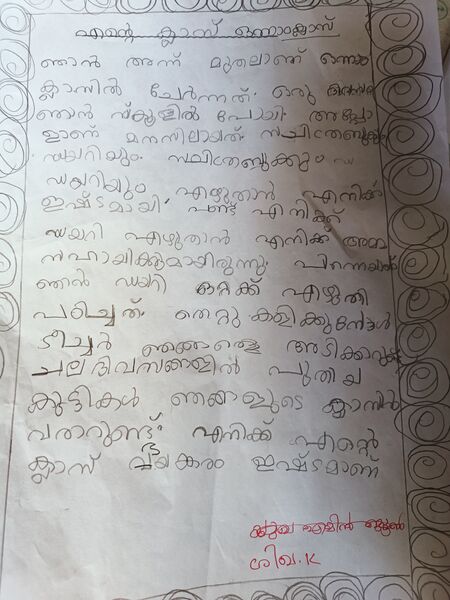 എന്റെ ക്ലാസ് ഒന്നാംക്ലാസ്
ഞാൻ അന്ന് മുതലാണ് ഒന്നാം
ക്ലാസിൽ ചേർന്നത്. ഒരു ദിവസം
ഞാൻ സ്കൂളിൽ പോയി. അപ്പോ
ളാണ് മനസിലായത് സചിത്രബുക്കും
ഡയറിയും. സചിത്രബുക്കും
ഡയറിയും എഴുതാൻ എനിക്ക്
ഇഷ്ടമായി. പണ്ട് എനിക്ക്
ഡയറി എഴുതാൻ എനിക്ക് അമ്മ
സഹായിക്കുമായിരുന്നു. പിന്നെയത്
ഞാൻ ഡയറി ഒറ്റക്ക് എഴുതി
പഠിച്ചത്. തെറ്റു കളിക്കുമ്പോൾ
ടീച്ചർ ഞങ്ങളെ അടിക്കാറുണ്ട്
ചല ദിവസങ്ങളിൽ പുതിയ
കുട്ടികൾ ഞങ്ങളുടെ ക്ലാസിൽ
വരാറുണ്ട്. എനിക്ക് എന്റെ
ക്ലാസ് ഭയങ്കരം ഇഷ്ടമാണ്
ശിഖ.K